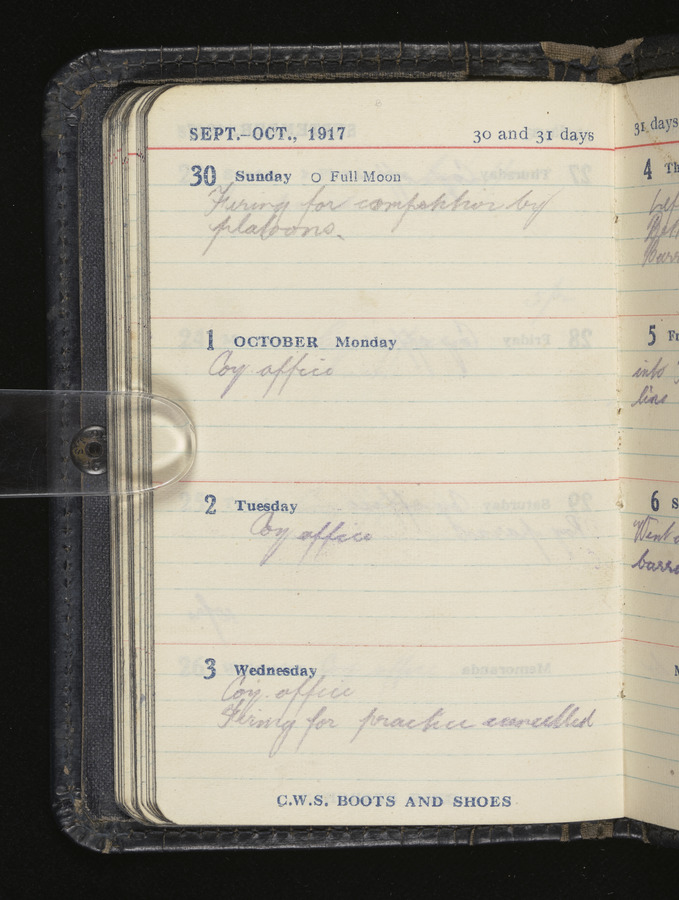 SEPT.–OCT., 1917 30 and 31 days
30 Sunday O Full Moon
Firing for competition by
platoons.
1 OCTOBER Monday
Coy office
2 Tuesday
Coy office
3 Wednesday
Coy. office
Firing for practice cancelled
C.W.S. BOOTS AND SHOES
31 days
4 Th
5 Fr
into
line
6 S
Went
barr